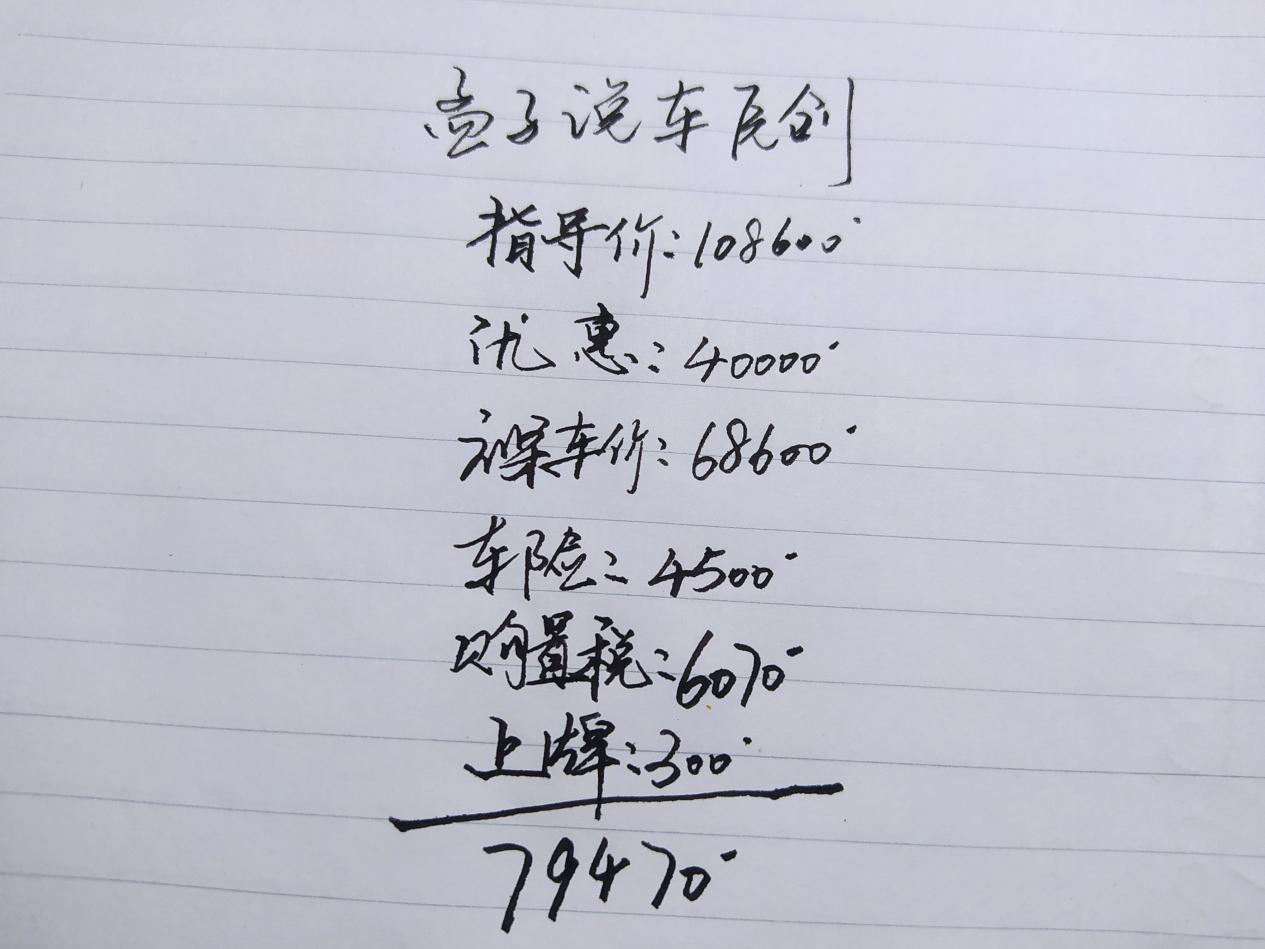 孟子说车原创
指导价:108600
优惠:40000
裸车价:68600
车险:4500
购置税:6070
上牌:300
79470